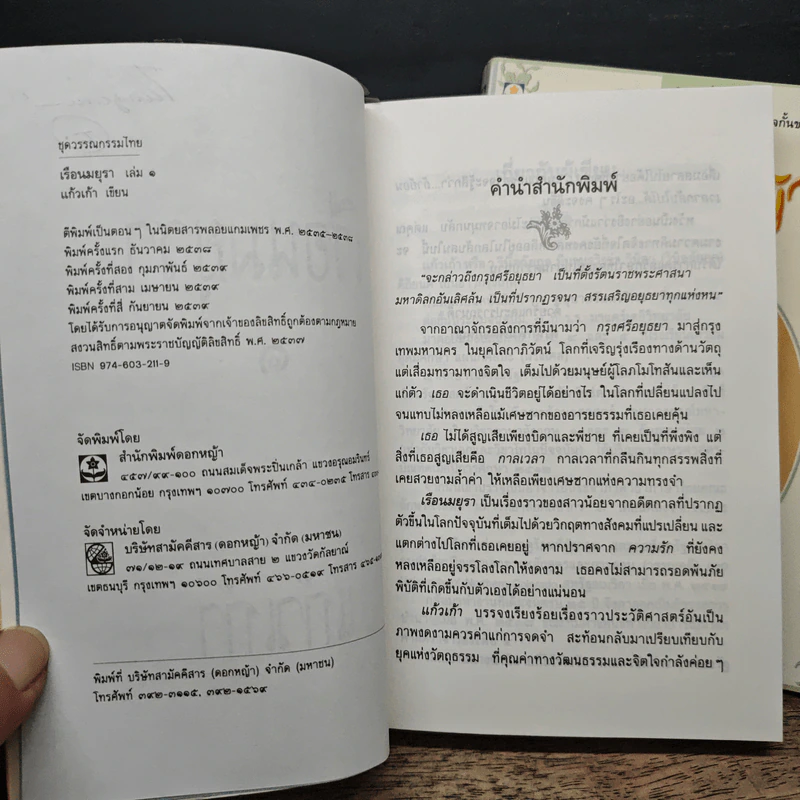 ชุดวรรณกรรมไทย
เรือนมยุรา เล่ม ๑
แก้วเก้า เขียน
ตีพิมพ์เป็นตอนๆ ในนิตยสารพลอยแกมเพชร พ.ศ. ๒๕๓๕-๒๕๓๘
พิมพ์ครั้งแรก ธันวาคม ๒๕๓๘
พิมพ์ครั้งที่สอง กุมภาพันธ์ ๒๕๓๙
พิมพ์ครั้งที่สาม เมษายน ๒๕๓๙
พิมพ์ครั้งที่สี่ กันยายน ๒๕๓๙
โดยได้รับการอนุญาตจัดพิมพ์จากเจ้าของลิขสิทธิ์ถูกต้องตามกฎหมาย
สงวนสิทธิ์ตามพระราชบัญญัติลิขสิทธิ์ พ.ศ. ๒๕๓๗
ISBN 974-603-211-9
จัดพิมพ์โดย
สำนักพิมพ์ดอกหญ้า
๔๕๗/๙๙-๑๐๐ ถนนสมเด็จพระปิ่นเกล้า แขวงอรุณอมรินทร์
เขตบางกอกน้อย กรุงเทพฯ ๑๐๗๐๐ โทรศัพท์ ๔๓๔-๐๒๓๕ โทรสาร
จัดจำหน่ายโดย
บริษัทสามัคคีสาร (ดอกหญ้า) จำกัด (มหาชน)
๗๑/๑๒-๑๙ ถนนเทศบาลสาย ๒ แขวงวัดกัลยาณ์
เขตธนบุรี กรุงเทพฯ ๑๐๖๐๐ โทรศัพท์ ๔๖๖-๐๕๑๙ โทรสาร
พิมพ์ที่ บริษัทสามัคคีสาร (ดอกหญ้า) จำกัด (มหาชน)
โทรศัพท์ ๓๙๒-๓๑๑๕, ๓๙๒-๑๕๖๙
คำนำสำนักพิมพ์
"จะกล่าวถึงกรุงศรีอยุธยา เป็นที่ตั้งรัตนราชพระศาสนา
มหาดิลกอันเลิศล้น เป็นที่ปรากฏรจนา สรรเสริญอยุธยาทุกแห่งหน"
จากอาณาจักรอลังการที่มีนามว่า กรุงศรีอยุธยา มาสู่กรุง
เทพมหานคร ในยุคโลกาภิวัตน์ โลกที่เจริญรุ่งเรืองทางด้านวัตถุ
แต่เสื่อมทรามทางจิตใจ เต็มไปด้วยมนุษย์ผู้โลภโมโทสันและเห็น
แก่ตัว เธอ จะดำเนินชีวิตอยู่ได้อย่างไร ในโลกที่เปลี่ยนแปลงไป
จนแทบไม่หลงเหลือแม้เศษซากของอารยธรรมที่เธอเคยคุ้น
เธอ ไม่ได้สูญเสียเพียงบิดาและพี่ชาย ที่เคยเป็นที่พึ่งพิง แต่
สิ่งที่เธอสูญเสียคือ กาลเวลา กาลเวลาที่กลืนกินทุกสรรพสิ่งที่
เคยสวยงามล้ำค่า ให้เหลือเพียงเศษซากแห่งความทรงจำ
เรือนมยุรา เป็นเรื่องราวของสาวน้อยจากอดีตกาลที่ปรากฏ
ตัวขึ้นในโลกปัจจุบันที่เต็มไปด้วยวิกฤตทางสังคมที่แปรเปลี่ยน และ
แตกต่างไปโลกที่เธอเคยอยู่ หากปราศจาก ความรัก ที่ยังคง
หลงเหลืออยู่จรรโลงโลกให้งดงาม เธอคงไม่สามารถรอดพ้นภัย
พิบัติที่เกิดขึ้นกับตัวเองได้อย่างแน่นอน
แก้วเก้า บรรจงเรียงร้อยเรื่องราวประวัติศาสตร์อันเป็น
ภาพงดงามควรค่าแก่การจดจำ สะท้อนกลับมาเปรียบเทียบกับ
ยุคแห่งวัตถุธรรม ที่คุณค่าทางวัฒนธรรมและจิตใจกำลังค่อยๆ